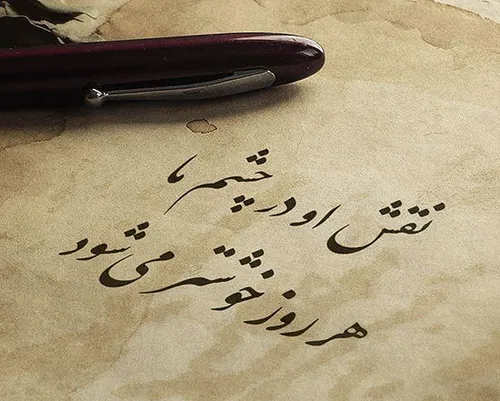 نقش او در چشم ما
هر روز خوشتر می شود